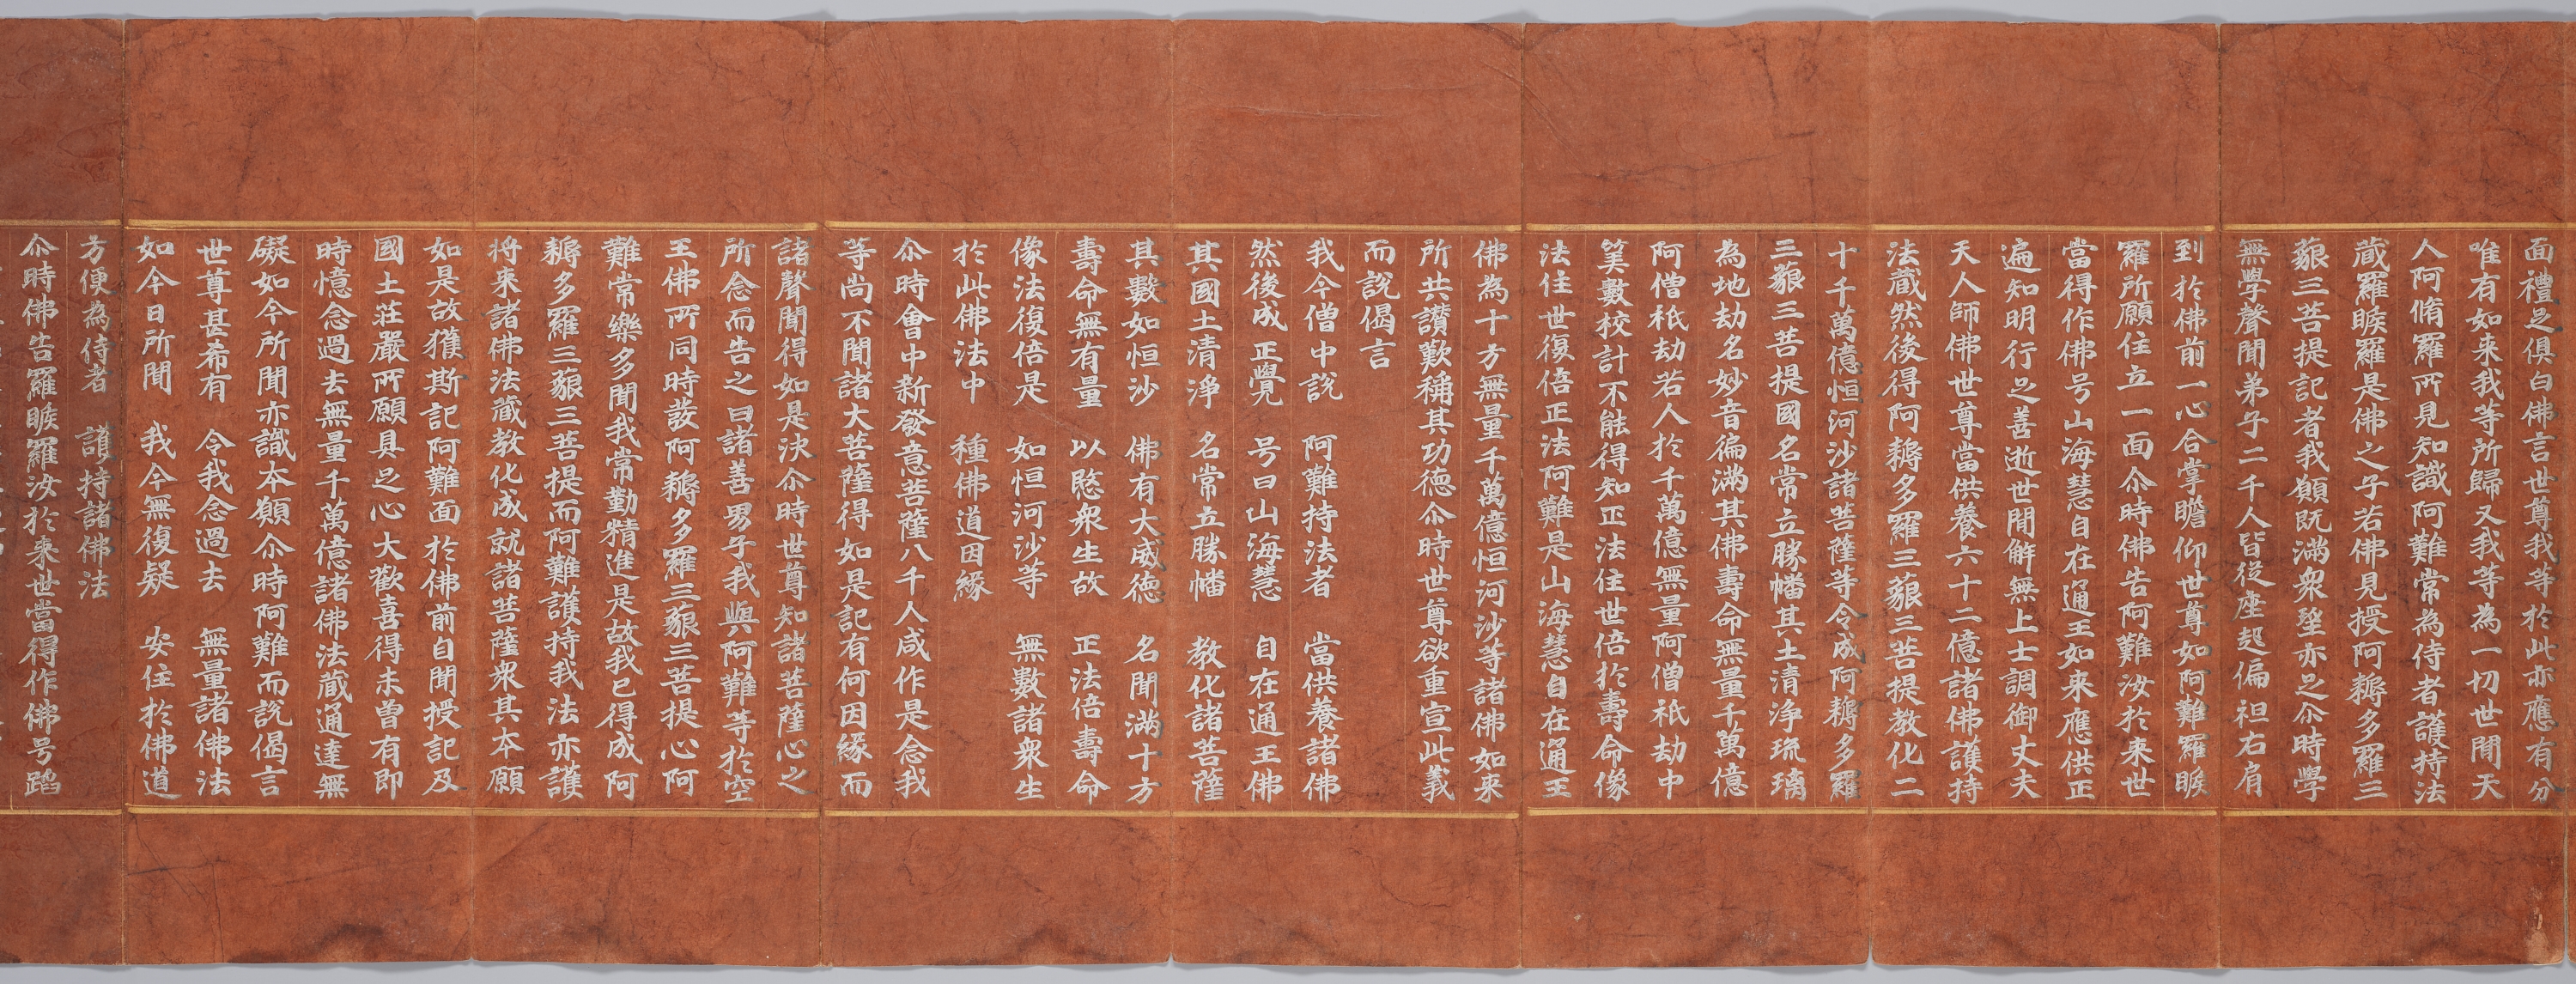 面禮足俱白佛言世尊我等於此亦應有分
唯有如來我等所歸又我等為一切世間天
人阿脩羅所見知識阿難常為侍者護持法
蔵羅睺羅是佛之子若佛見授阿耨多羅三
藐三菩提記者我願既滿衆望亦足尒時學
無學聲聞弟子二千人皆從座起偏袒右肩
到於佛前一心合掌瞻仰世尊如阿難羅睺
羅所願住立一面尒時佛告阿難汝於来世
當得作佛号山海慧自在通王如来應供正
遍知明行足善逝世間解無上士調御丈夫
天人師佛世尊當供養六十二億諸佛護持
法蔵然後得阿耨多羅三藐三菩提教化二
十千萬億恒河沙諸菩薩等令成阿耨多羅
三藐三菩提國名常立勝幡其土清浄琉璃
為地劫名妙音徧滿其佛壽命無量千萬億
阿僧祇劫若人於千萬億無量阿僧祇劫中
筭數校計不能得知正法住世倍於壽命像
法住世復倍正法阿難是山海慧自在通王
佛為十方無量千萬億恒河沙等諸佛如来
所共讃歎稱其功德尒時世尊欲重宣此義
而說偈言
我今僧中說　阿難持法者　當供養諸佛
然後成正覺　号曰山海慧　自在通王佛
其國土清淨　名常立勝幡　教化諸菩薩
其數如恒沙　佛有大威德　名聞滿十方
壽命無有量　以愍衆生故　正法倍壽命
像法復倍是　如恒河沙等　無數諸衆生
於此佛法中　種佛道因緣
尒時會中新發意菩薩八千人咸作是念我
等尚不聞諸大菩薩得如是記有何因緣而
諸聲聞得如是決尒時世尊知諸菩薩心之
所念而告之曰諸善男子我與阿難等於空
王佛所同時發阿耨多羅三藐三菩提心阿
難常樂多聞我常勤精進是故我已得成阿
耨多羅三藐三菩提而阿難護持我法亦護
将来諸佛法蔵教化成就諸菩薩衆其本願
如是故獲斯記阿難面於佛前自聞授記及
國土莊嚴所願具足心大歡喜得未曾有即
時憶念過去無量千萬億諸佛法蔵通達無
礙如今所聞亦識本願尒時阿難而說偈言
世尊甚希有　令我念過去　無量諸佛法
如今日所聞　我今無復疑　安住於佛道
方便為侍者　護持諸佛法
尒時佛告羅睺羅汝於来世當得作佛号蹈